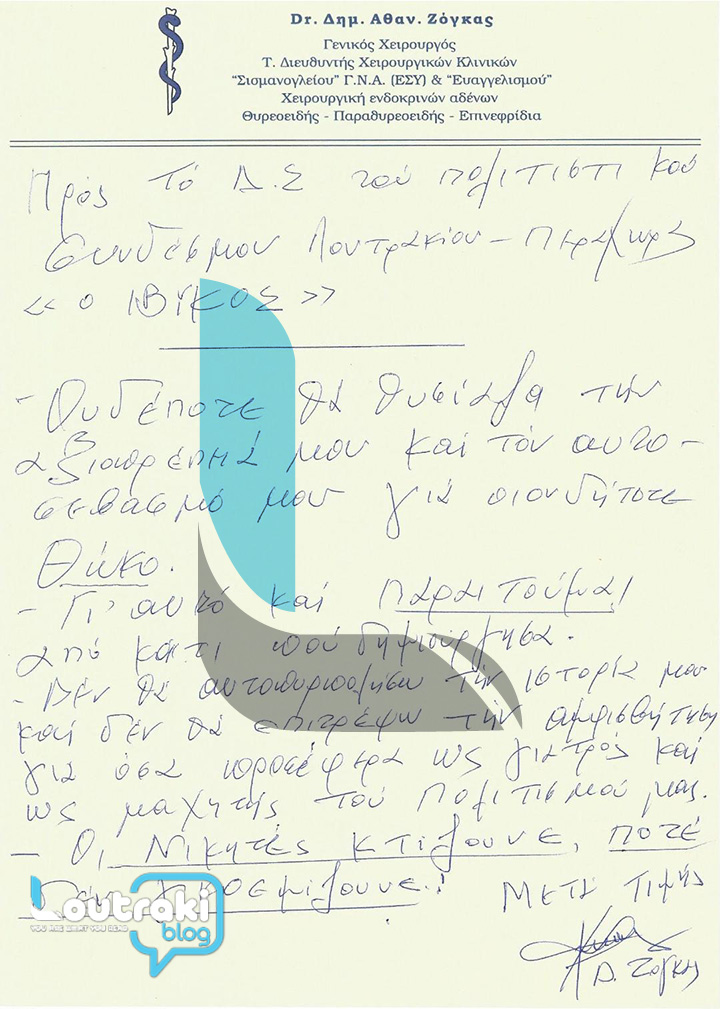 Dr. Δημ. Αθαν. Ζόγκας
Γενικός Χειρουργός
Τ. Διευθυντής Χειρουργικών Κλινικών
“Σισμανογλείου” Γ.Ν.Α. (ΕΣΥ) & “Ευαγγελισμού”
Χειρουργική ενδοκρινών αδένων
Θυρεοειδής - Παραθυρεοειδής - Επινεφρίδια
Πρός τό Δ.Σ τού πολιτιστικού
Συνδέσμου Λουτρακίου - Περαχώρας
<< Ο ΙΒΥΚΟΣ >>
- Ουδέποτε θά θυσίαζα τήν
αξιοπρέπειά μου καί τόν αυτο-
σεβασμό μου γιά οιονδήποτε
Θώκο.
- Γι' αυτό καί Παραιτούμαι!
από κάτι πού δημιούργησα.
- Δέν θά αυτοπυροβολήσω τήν ιστορία μου
καί δέν θά επιτρέψω τήν αμφισβήτηση
γιά όσα προσέφερα ως γιατρός καί
ως μαχητής τού Πολιτισμού μας.
- Οι Νικητές κτίζουνε, ποτέ
δέν γκρεμίζουνε!
Μετά τιμής
Δ. Ζόγκας
Loutraki
YOU ARE WHAT YOU READ
blog